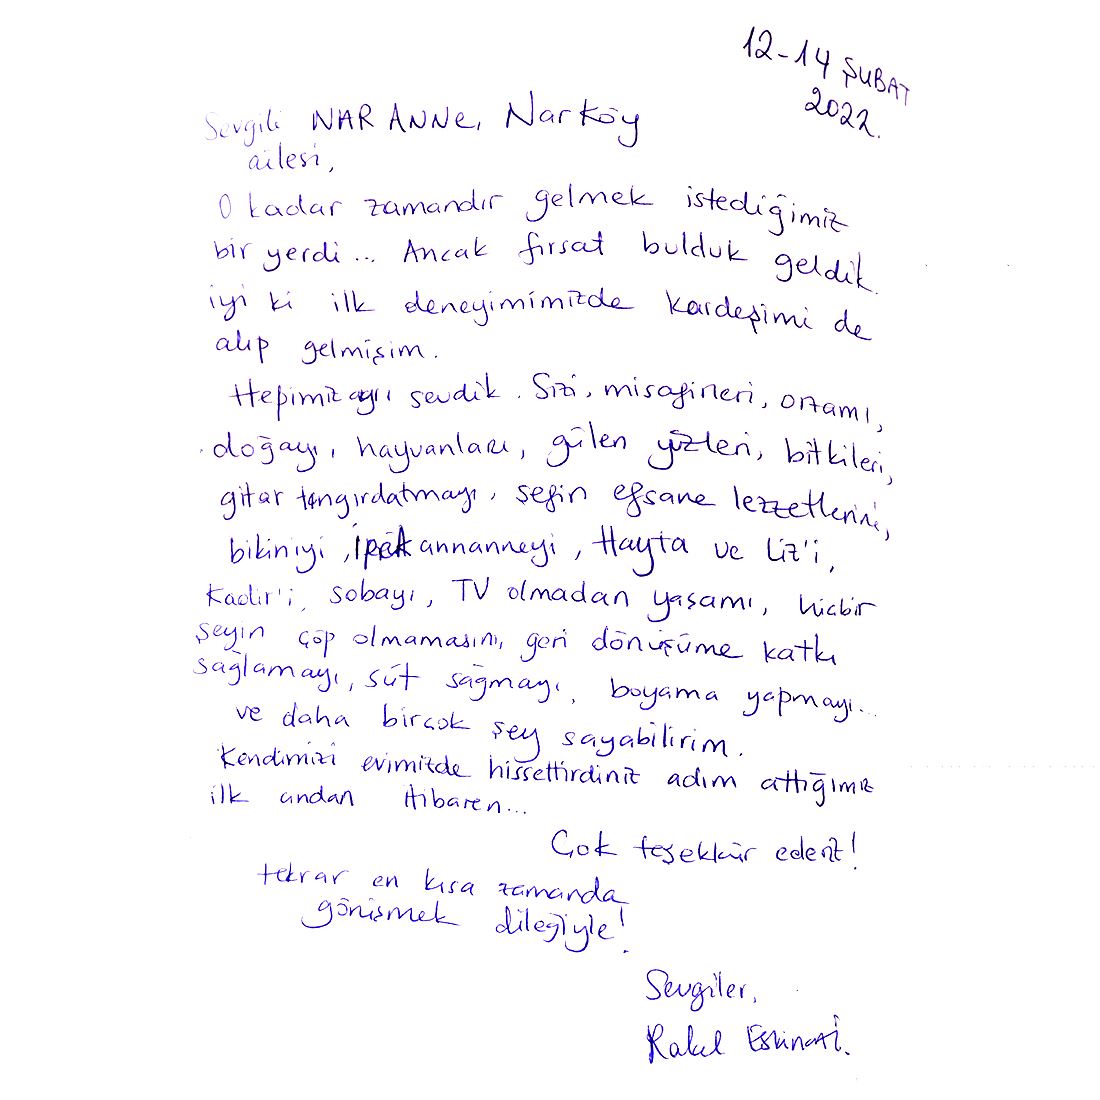 12-14 ŞUBAT
2022.
Sevgili NAR ANNe, Narköy
ailesi,
O kadar zamandır gelmek istediğimiz
bir yerdi... Ancak fırsat bulduk geldik.
iyi ki ilk deneyimimizde kardeşimi de
alıp gelmişim.
Hepimiz ayrı sevdik. Sizi, misafirleri, ortamı,
doğayı, hayvanları, gülen yüzleri, bitkileri,
gitar tıngırdatmayı, şefin efsane lezzetlerini,
bikiniyi, İpek annanneyi, Hayta ve Liz'i,
Kadir'i, sobayı, TV olmadan yaşamı, hiçbir
şeyin çöp olmamasını, geri dönüşüme katkı
sağlamayı, süt sağmayı, boyama yapmayı...
ve daha birçok şey sayabilirim.
Kendimizi evimizde hissettirdiniz adım attığımız
ilk andan itibaren...
Çok teşekkür ederiz!
tekrar en kısa zamanda
görüşmek dileğiyle!
Sevgiler,